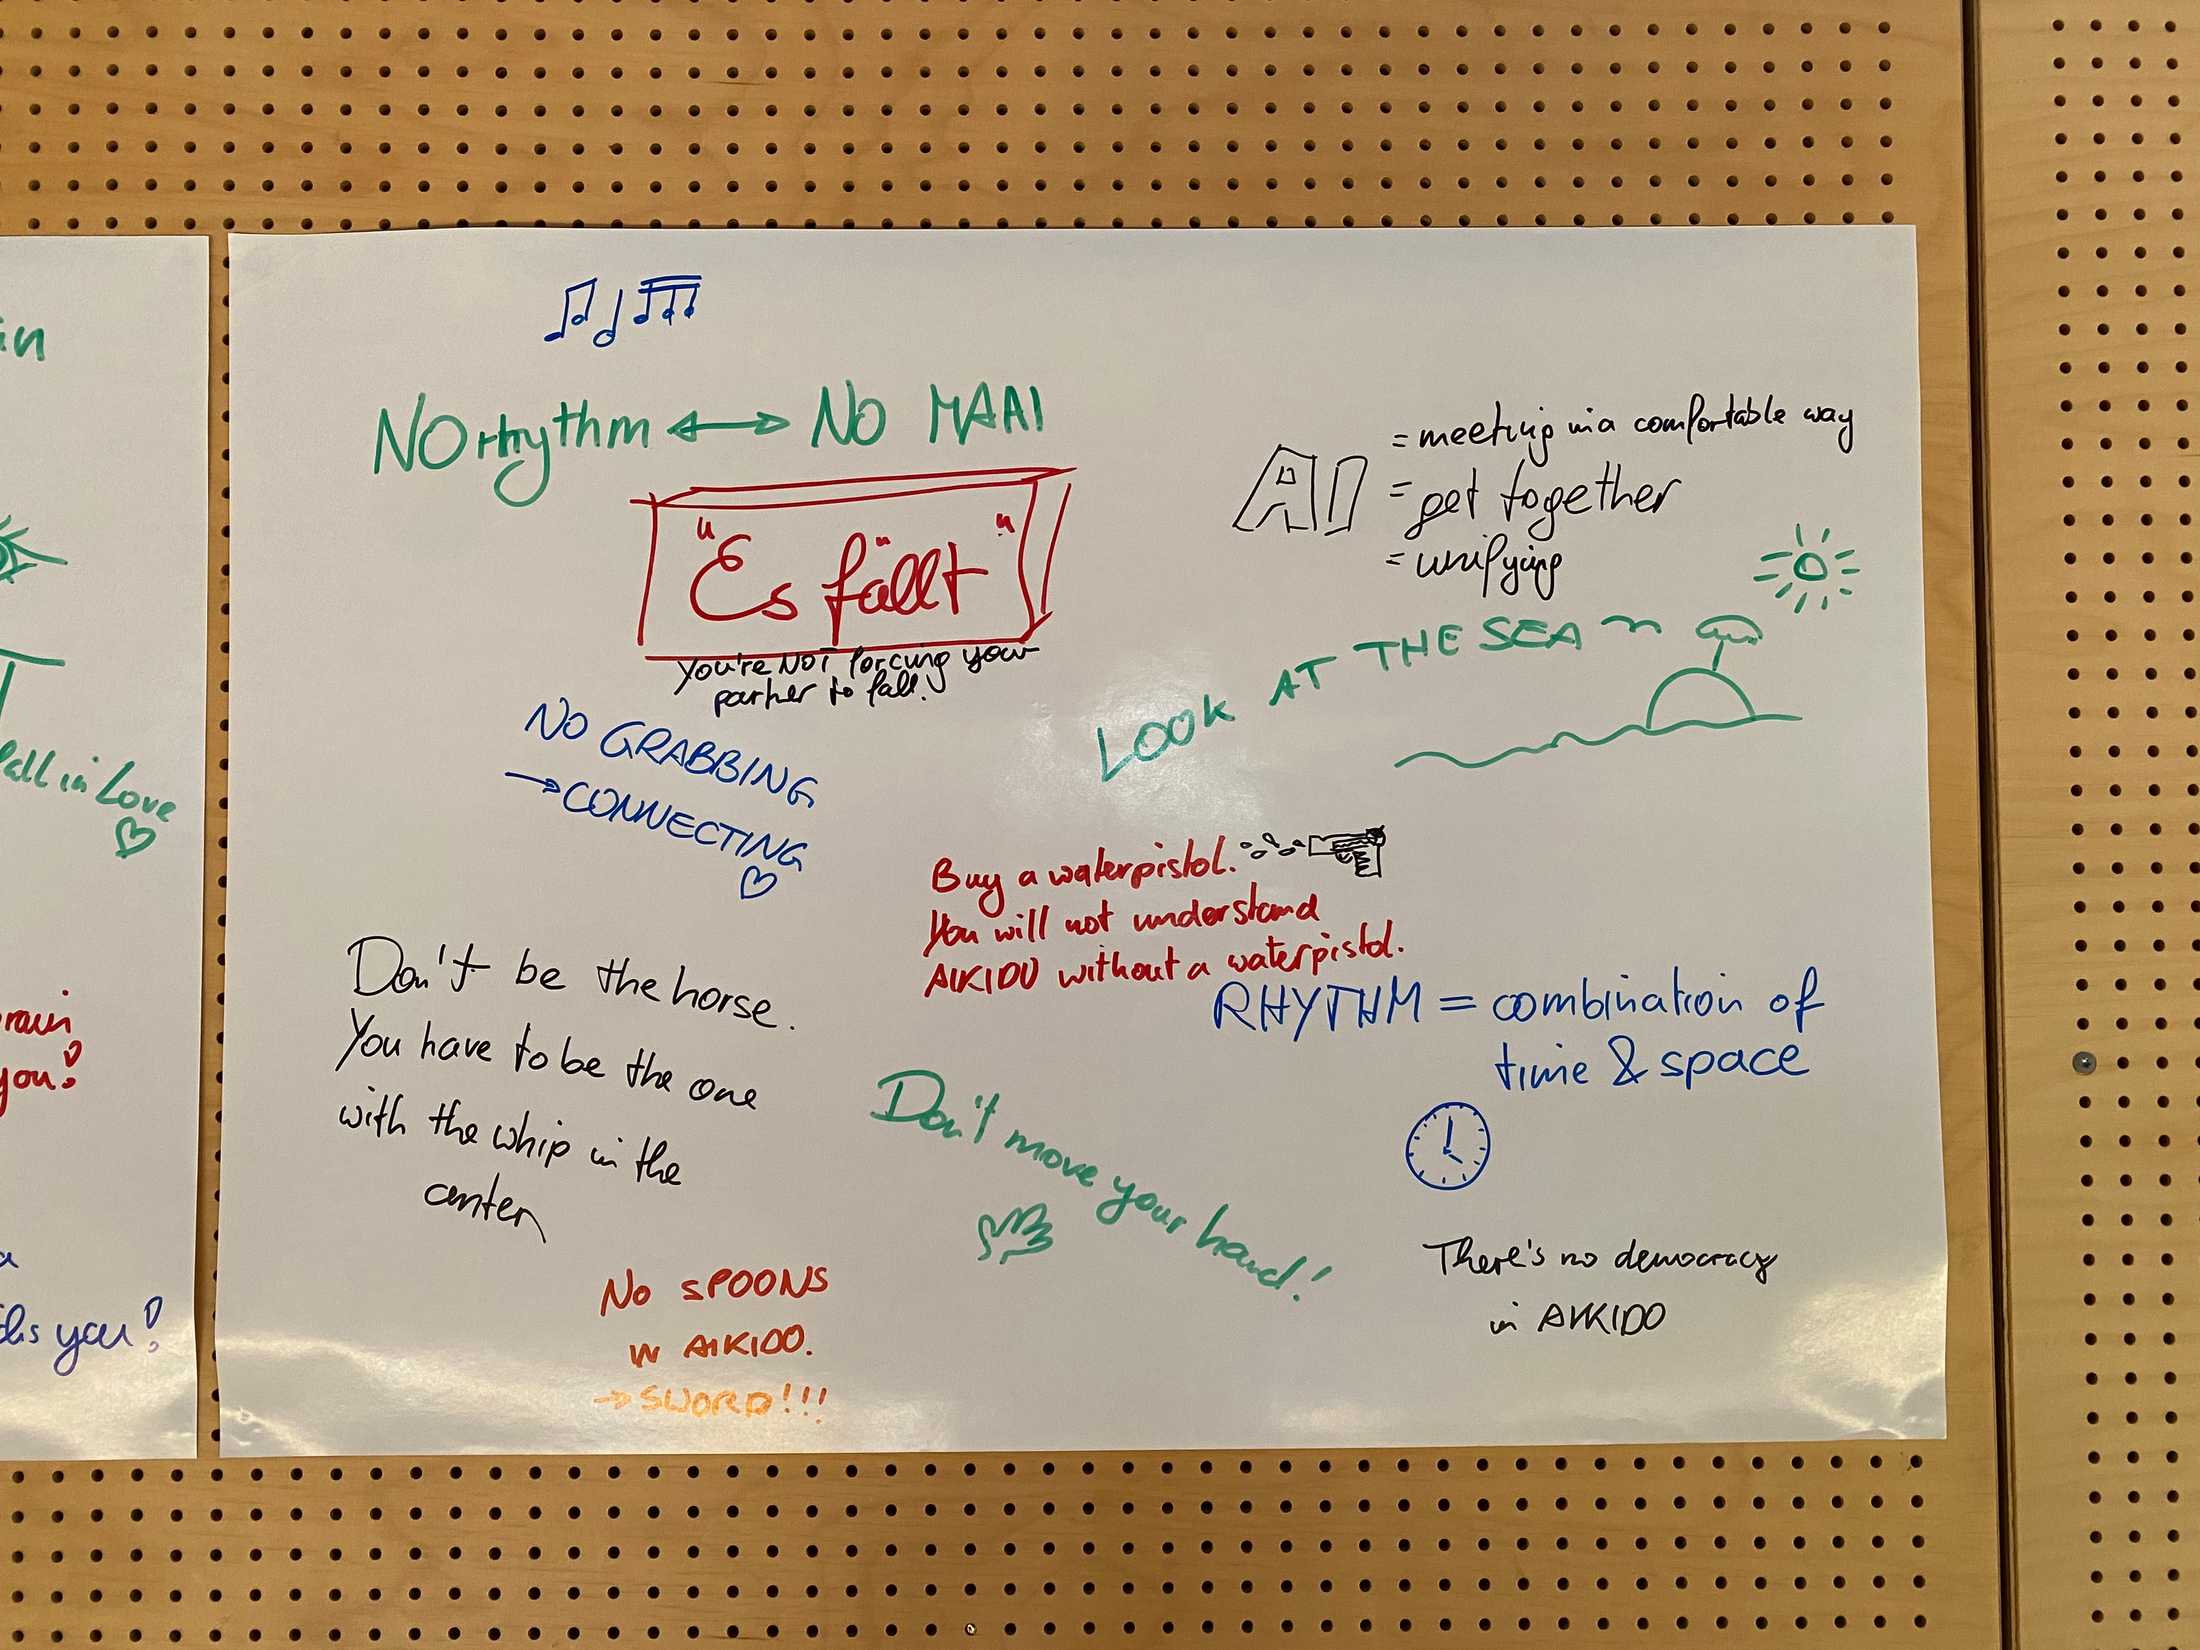 in
fall in Love
you!
you!
NO rhythm ↔ NO MAAI
"Es fällt"
You're NOT forcing your
partner to fall.
NO GRABBING
→ CONNECTING
AI
= meeting in a comfortable way
= get together
= unifying
LOOK AT THE SEA ~
Buy a waterpistol.
You will not understand
AIKIDO without a waterpistol.
Don't be the horse.
You have to be the one
with the whip in the
center
RHYTHM = combination of
time & space
Don't move your hand!
No SPOONS
in AIKIDO.
→ SWORD!!!
There's no democracy
in AIKIDO